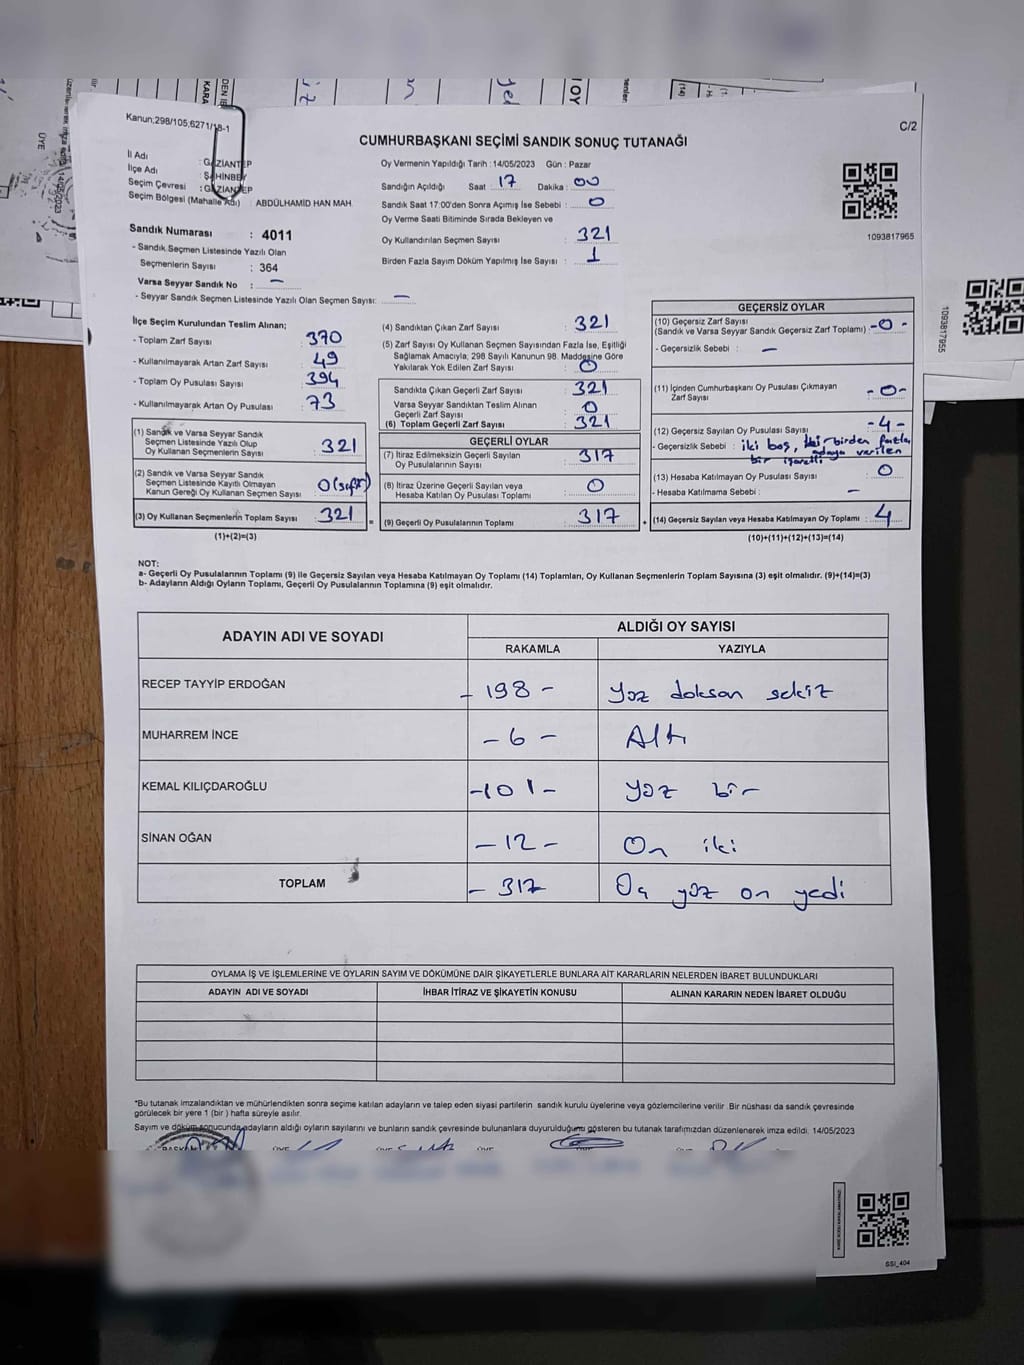 Kanun;298/105;6271/18-1
C/2
CUMHURBAŞKANI SEÇİMİ SANDIK SONUÇ TUTANAĞI
İl Adı : GAZİANTEP
İlçe Adı : ŞAHİNBEY
Seçim Çevresi : GAZİANTEP
Seçim Bölgesi (Mahalle Adı) : ABDÜLHAMİD HAN MAH.
Oy Vermenin Yapıldığı Tarih : 14/05/2023 Gün : Pazar
Sandığın Açıldığı Saat : 17 Dakika : 00
Sandık Saat 17:00'den Sonra Açımış İse Sebebi : 0
Oy Verme Saati Bitiminde Sırada Bekleyen ve
Oy Kullandırılan Seçmen Sayısı : 321
Birden Fazla Sayım Döküm Yapılmış İse Sayısı : 1
1093817965
Sandık Numarası : 4011
- Sandık Seçmen Listesinde Yazılı Olan
Seçmenlerin Sayısı : 364
Varsa Seyyar Sandık No : —
- Seyyar Sandık Seçmen Listesinde Yazılı Olan Seçmen Sayısı: —
İlçe Seçim Kurulundan Teslim Alınan;
- Toplam Zarf Sayısı : 370
- Kullanılmayarak Artan Zarf Sayısı : 49
- Toplam Oy Pusulası Sayısı : 394
- Kullanılmayarak Artan Oy Pusulası : 73
(1) Sandık ve Varsa Seyyar Sandık
Seçmen Listesinde Yazılı Olup
Oy Kullanan Seçmenlerin Sayısı : 321
(2) Sandık ve Varsa Seyyar Sandık
Seçmen Listesinde Kayıtlı Olmayan
Kanun Gereği Oy Kullanan Seçmen Sayısı : 0(sıfır)
(3) Oy Kullanan Seçmenlerin Toplam Sayısı : 321
(1)+(2)=(3)
(4) Sandıktan Çıkan Zarf Sayısı : 321
(5) Zarf Sayısı Oy Kullanan Seçmen Sayısından Fazla İse, Eşitliği
Sağlamak Amacıyla; 298 Sayılı Kanunun 98. Maddesine Göre
Yakılarak Yok Edilen Zarf Sayısı : 0
Sandıkta Çıkan Geçerli Zarf Sayısı : 321
Varsa Seyyar Sandıktan Teslim Alınan
Geçerli Zarf Sayısı : 0
(6) Toplam Geçerli Zarf Sayısı : 321
GEÇERLİ OYLAR
(7) İtiraz Edilmeksizin Geçerli Sayılan
Oy Pusulalarının Sayısı : 317
(8) İtiraz Üzerine Geçerli Sayılan veya
Hesaba Katılan Oy Pusulası Toplamı : 0
= (9) Geçerli Oy Pusulalarının Toplamı : 317
GEÇERSİZ OYLAR
(10) Geçersiz Zarf Sayısı
(Sandık ve Varsa Seyyar Sandık Geçersiz Zarf Toplamı) : -0-
- Geçersizlik Sebebi : —
(11) İçinden Cumhurbaşkanı Oy Pusulası Çıkmayan
Zarf Sayısı : -0-
(12) Geçersiz Sayılan Oy Pusulası Sayısı : -4-
- Geçersizlik Sebebi : iki boş, iki birden fazla
adaya verilen
bir işaretli
(13) Hesaba Katılmayan Oy Pusulası Sayısı : 0
- Hesaba Katılmama Sebebi : —
+ (14) Geçersiz Sayılan veya Hesaba Katılmayan Oy Toplamı : 4
(10)+(11)+(12)+(13)=(14)
NOT:
a- Geçerli Oy Pusulalarının Toplamı (9) ile Geçersiz Sayılan veya Hesaba Katılmayan Oy Toplamı (14) Toplamları, Oy Kullanan Seçmenlerin Toplam Sayısına (3) eşit olmalıdır. (9)+(14)=(3)
b- Adayların Aldığı Oyların Toplamı, Geçerli Oy Pusulalarının Toplamına (9) eşit olmalıdır.
ADAYIN ADI VE SOYADI ALDIĞI OY SAYISI
RAKAMLA YAZIYLA
RECEP TAYYİP ERDOĞAN - 198 - Yüz doksan sekiz
MUHARREM İNCE - 6 - Altı
KEMAL KILIÇDAROĞLU -101- Yüz bir
SİNAN OĞAN - 12 - On iki
TOPLAM - 317 Üç yüz on yedi
OYLAMA İŞ VE İŞLEMLERİNE VE OYLARIN SAYIM VE DÖKÜMÜNE DAİR ŞİKAYETLERLE BUNLARA AİT KARARLARIN NELERDEN İBARET BULUNDUKLARI
ADAYIN ADI VE SOYADI İHBAR İTİRAZ VE ŞİKAYETİN KONUSU ALINAN KARARIN NEDEN İBARET OLDUĞU
*Bu tutanak imzalandıktan ve mühürlendikten sonra seçime katılan adayların ve talep eden siyasi partilerin sandık kurulu üyelerine veya gözlemcilerine verilir. Bir nüshası da sandık çevresinde
görülecek bir yere 1 (bir) hafta süreyle asılır.
Sayım ve döküm sonucunda adayların aldığı oyların sayılarını ve bunların sandık çevresinde bulunanlara duyurulduğunu gösteren bu tutanak tarafımızdan düzenlenerek imza edildi. 14/05/2023
SSI_404
1093817955
ÜYE